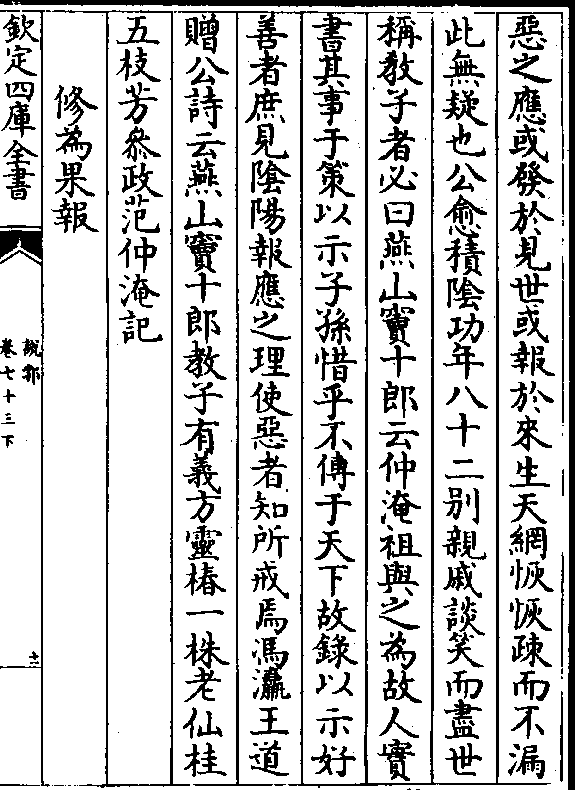 惡之應或發於見世或報於來生天網恢恢疎而不漏
此無疑也公愈積隂功年八十二别親戚談笑而盡世
稱教子者必曰燕山竇十郎云仲淹祖與之為故人實
書其事于策以示子孫惜乎不傳于天下故錄以示好
善者庶見隂陽報應之理使惡者知所戒焉馮瀛王道
贈公詩云燕山竇十郎教子有義方靈椿一株老仙桂
五枝芳叅政范仲淹記
修為果報
欽定四庫全書
說郛
卷七十三下
十二